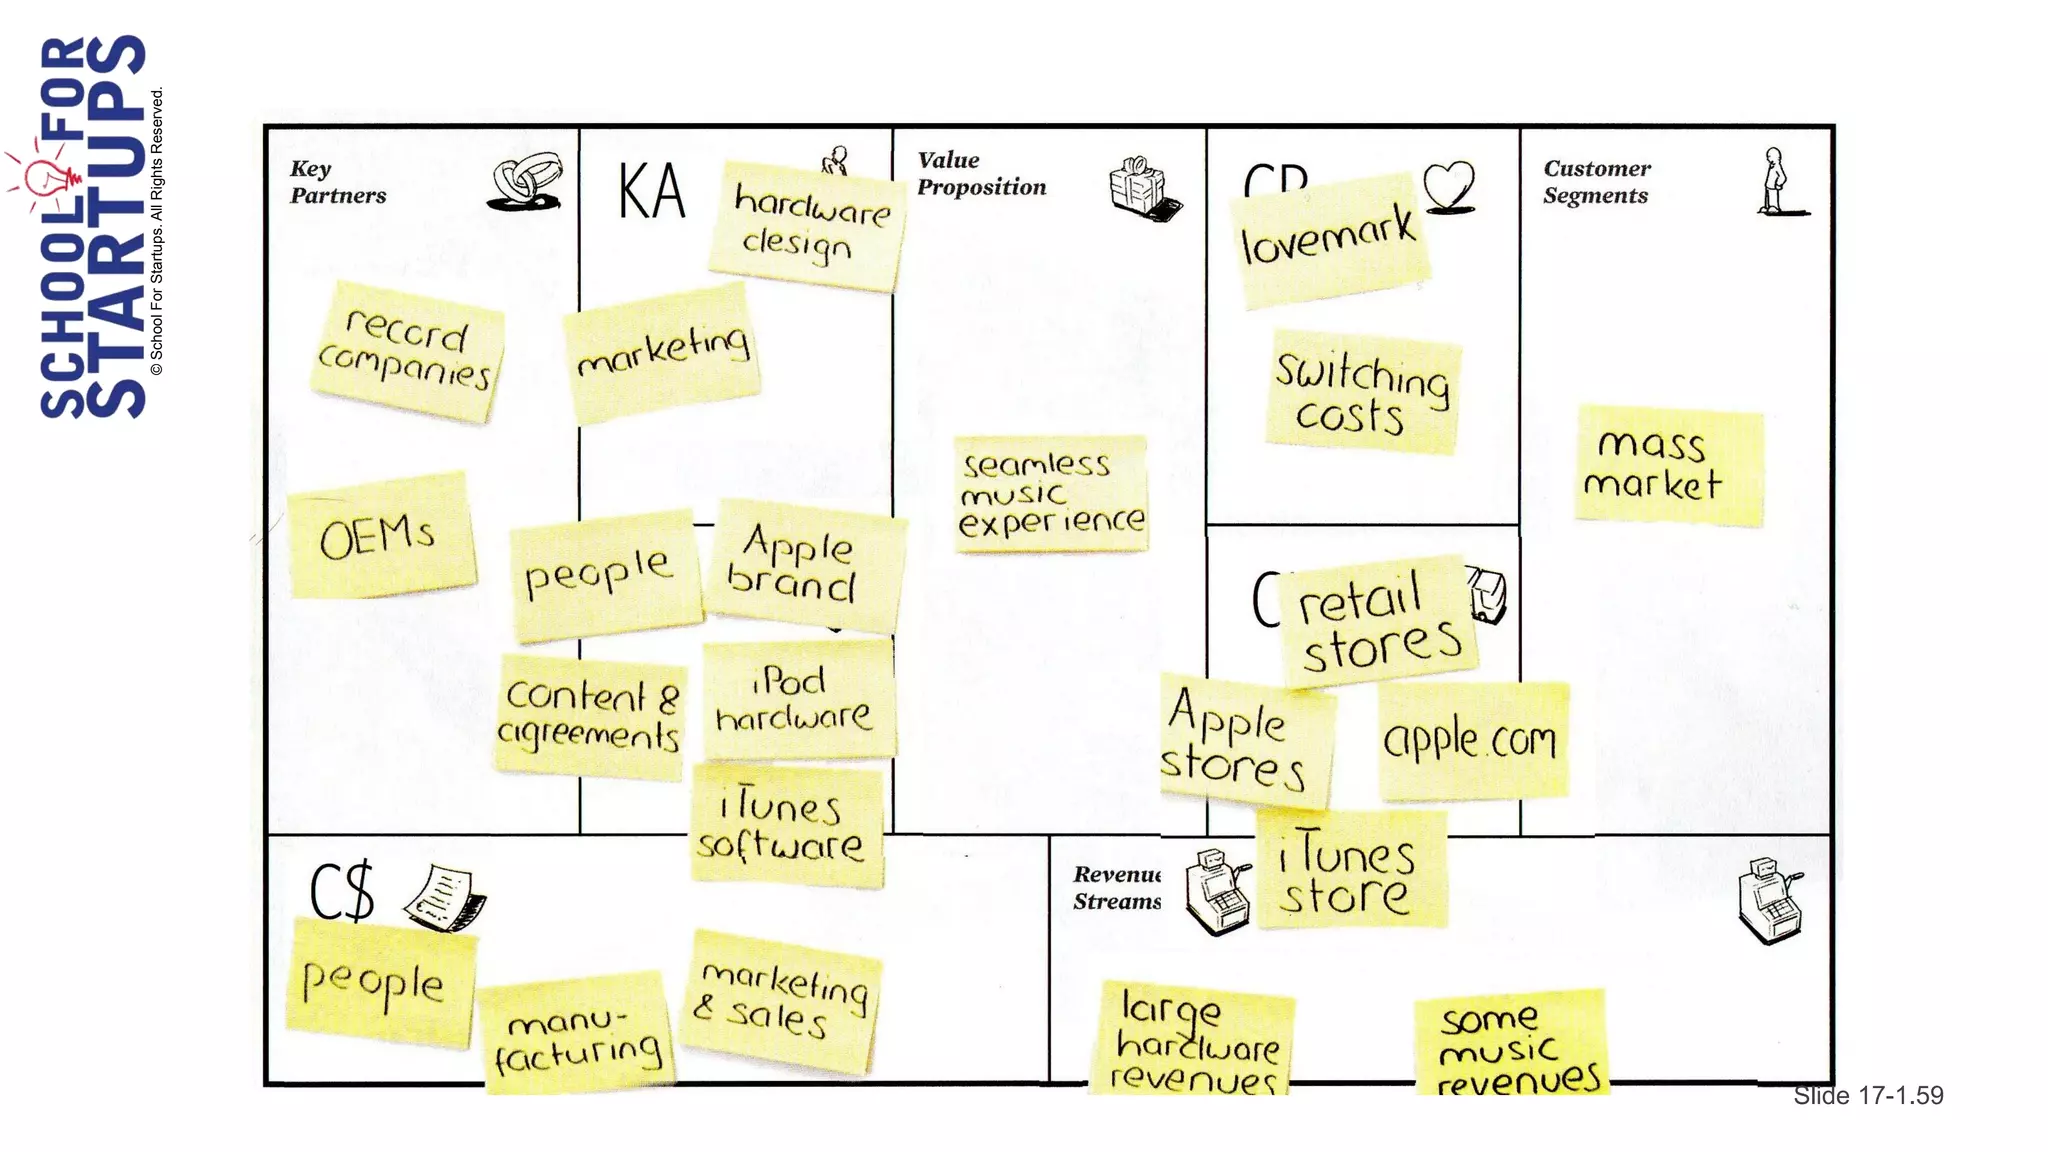 SCHOOL FOR
STARTUPS
© School For Startups. All Rights Reserved.
Key
Partners
record
companies
OEMs
KA
hardware
design
marketing
people
Apple
brand
content &
agreements
iPod
hardware
iTunes
software
Value
Proposition
seamless
music
experience
lovemark
switching
costs
retail
stores
Apple
stores
apple.com
iTunes
store
Customer
Segments
mass
market
C$
people
manu-
facturing
marketing
& sales
Revenue
Streams
large
hardware
revenues
some
music
revenues
Slide 17-1.59